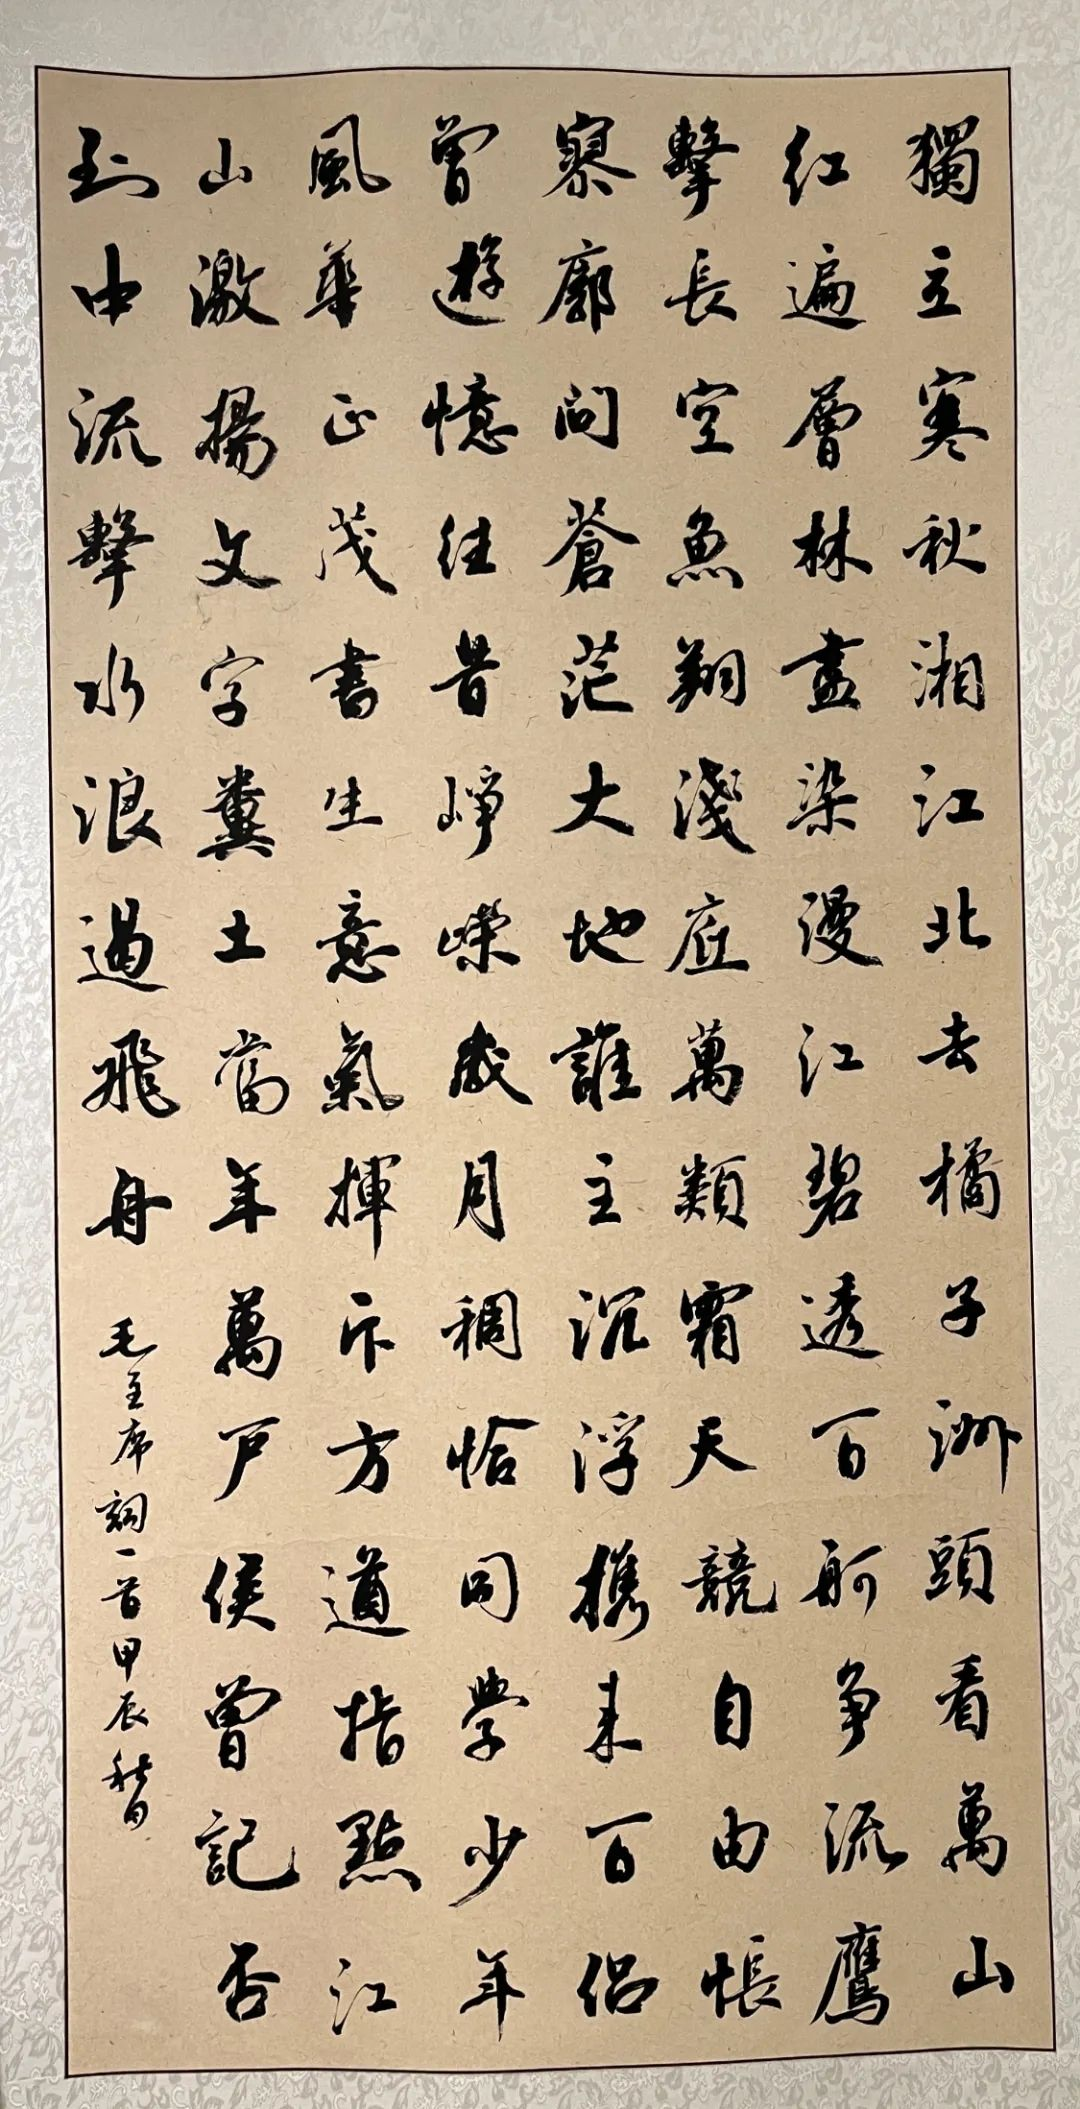 獨立寒秋湘江北去橘子洲頭看萬山
紅遍層林盡染漫江碧透百舸争流鷹
擊長空魚翔淺底萬類霜天競自由悵
寥廓問蒼茫大地誰主沉浮携来百侣
曾遊憶往昔崢嶸歲月稠恰同學少年
風華正茂書生意氣揮斥方遒指點江
山激揚文字糞土當年萬户侯曾記否
到中流擊水浪遏飛舟
毛主席詞一首甲辰秋日